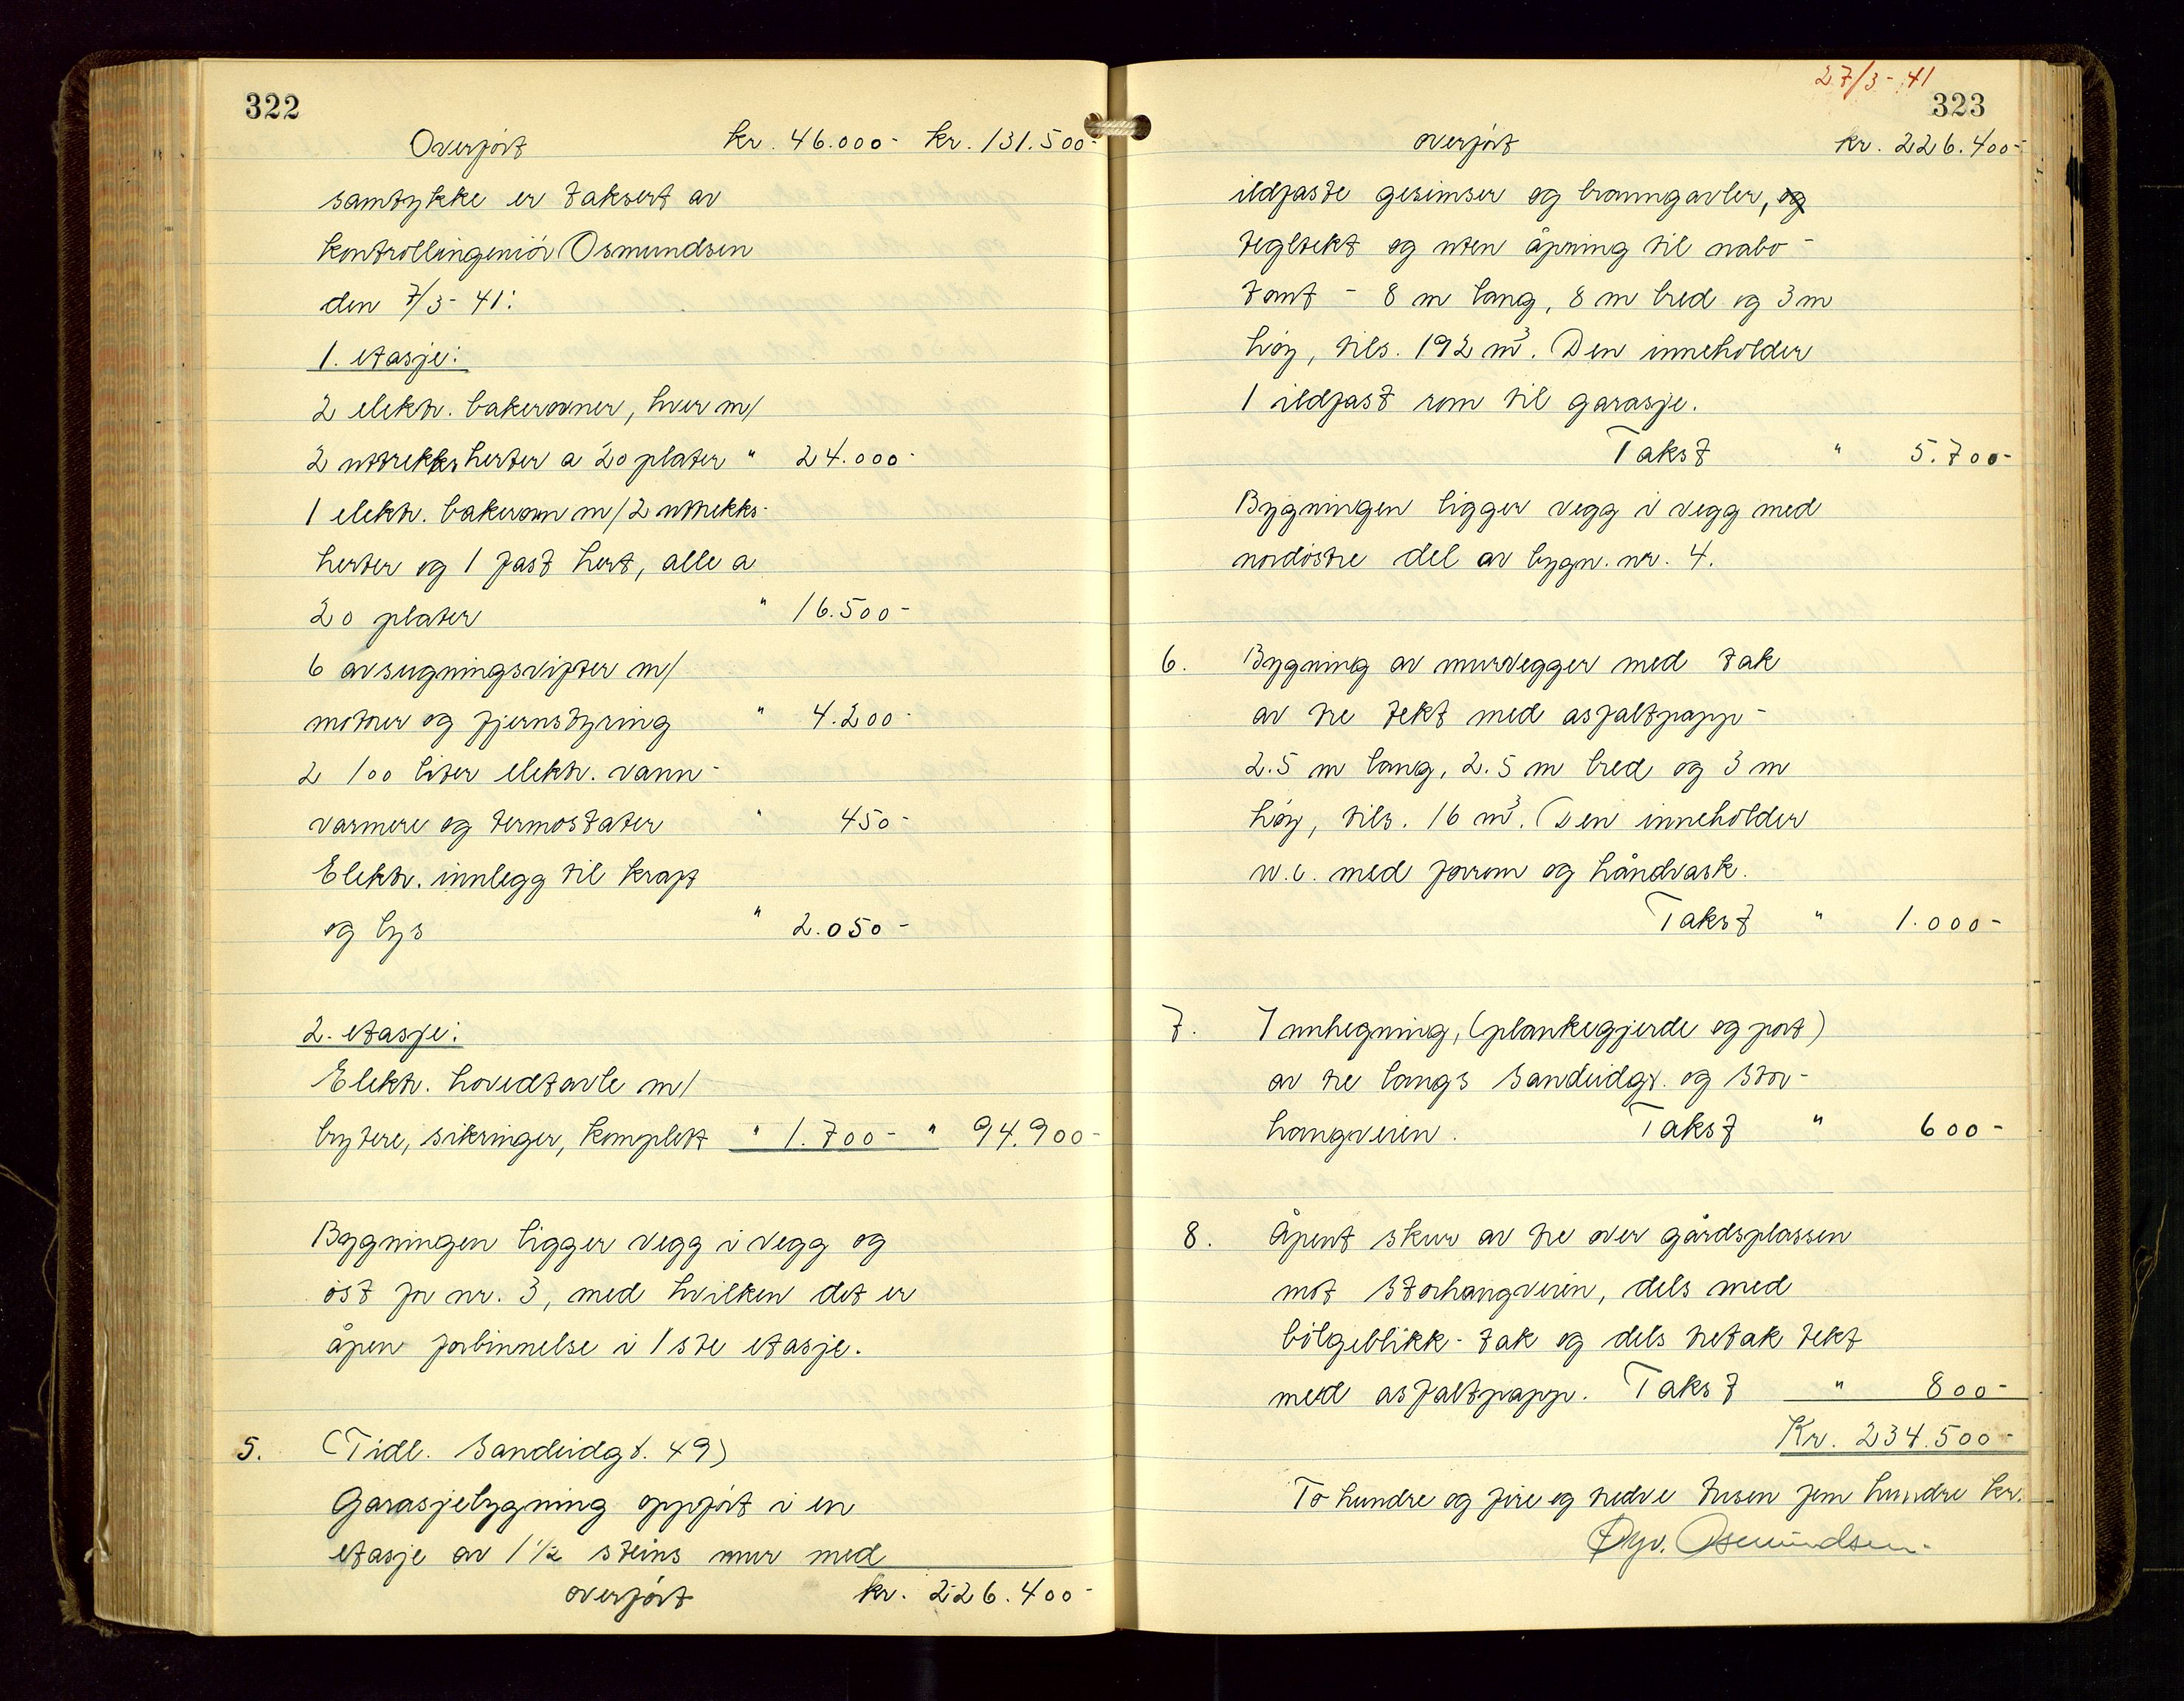 322
Overført kr. 46.000- kr. 131.500-
samtykke er taksert av
kontrollingeniør Osmundsen
den 7/3- 41:
1. etasje:
2 elektr. bakerovner, hver m/
2 uttrekksherter a 20 plater " 24.000-
1 elektr. bakerovn m/2 uttrekks-
herter og 1 fast hert, alle a
20 plater " 16.500-
6 avsugningsvifter m/
motorer og fjernstyring " 4.200-
2 100 liter elektr. vann-
varmere og termostater " 450-
Elektr. innlegg til kraft
og lys " 2.050-
2. etasje:
Elektr. hovedtavle m/
brytere, sikringer, komplett " 1.700- " 94.900-
Bygningen ligger vegg i vegg og
øst for nr. 3, med hvilken det er
åpen forbinnelse i 1ste etasje.
5. (Tidl. Sandeidgt. 49)
Garasjebygning oppført i en
etasje av 1 1/2 steins mur med
overført kr. 226.400-
27/3- 41
323
overført kr. 226.400-
ildfaste gesimser og branngavler, og
tegltekt og uten åpning til nabo-
tomt - 8 m lang, 8 m bred og 3 m
høy, tils. 192 m³. Den inneholder
1 ildfast rom til garasje.
Takst " 5.700-
Bygningen ligger vegg i vegg med
nordøstre del av bygn. nr. 4.
6. Bygning av murvegger med tak
av tre tekt med asfaltpapp-
2.5 m lang, 2.5 m bred og 3 m
høy, tils. 16 m³. Den inneholder
w.c. med forrom og håndvask.
Takst " 1.000-
7. Innhegning, (plankegjerde og port)
av tre langs Sandeidgt. og Stor-
haugveien. Takst " 600-
8. Åpent skur av tre over gårdsplassen
mot Storhaugveien, dels med
bølgeblikk-tak og dels tretak tekt
med asfaltpapp. Takst " 800-
Kr. 234.500-
To hundre og fire og tredve tusen fem hundre kr.
Osmundsen.